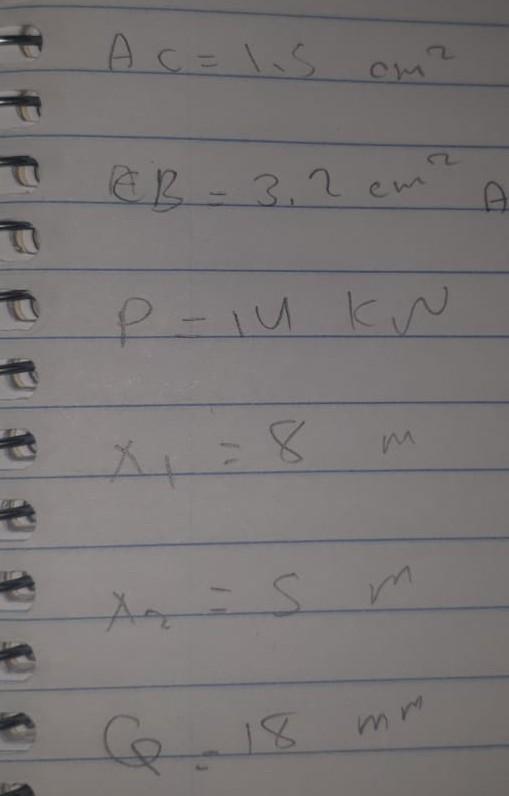 Ac = 1.5 cm²
EB = 3.2 cm² A
P = 14 KN
x₁ = 8 m
x₂ = 5 m
Q = 18 mm